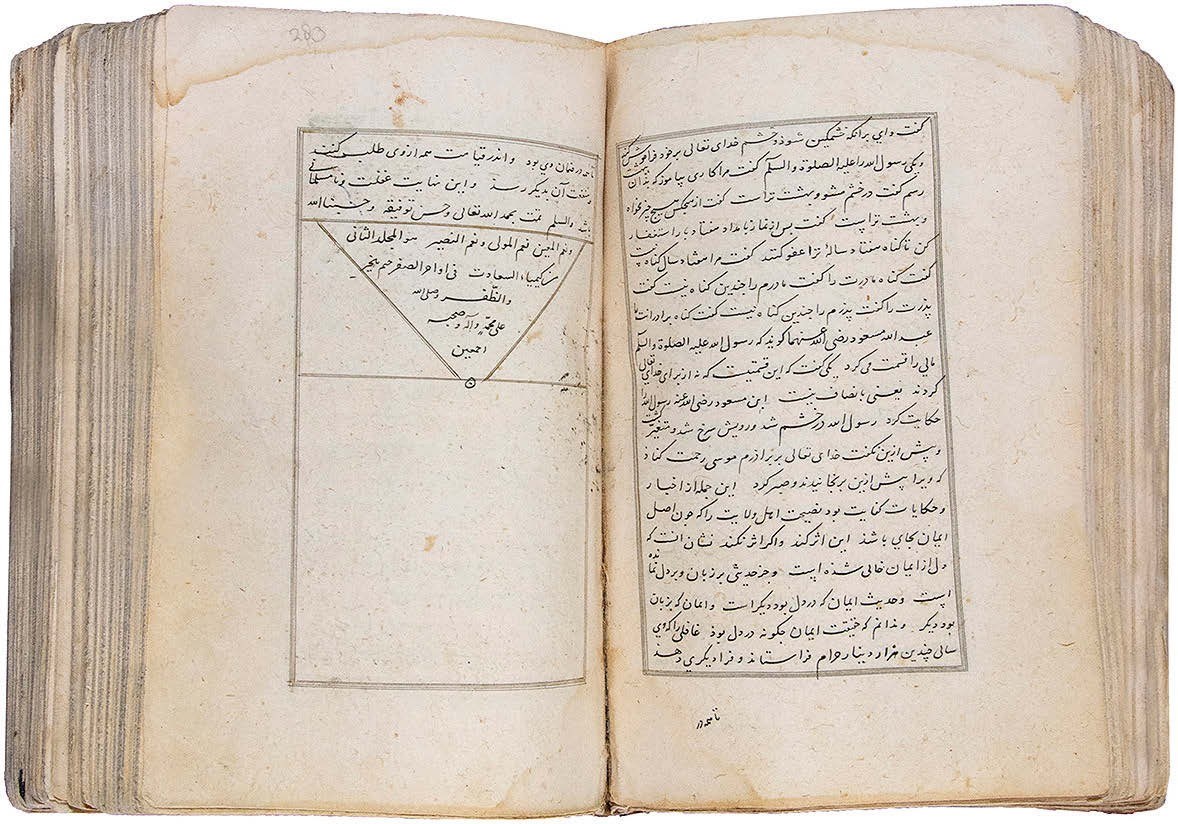 گفت وای بر آنکه خشمگین شود و خشم خدای تعالی بر خود فراموش کند
و یکی رسول الله را علیه الصلوة والسلم گفت مرا کاری بیاموز که بدان ببهشت
رسم گفت در خشم مشو و بهشت تراست گفت از هیچکس هیچ چیز مخواه
و بهشت تراست گفت پس از نماز بامداد هفتاد بار استغفار
کن تا گناه هفتاد ساله ترا عفو کنند گفت مرا هفتاد سال گناه نیست
گفت گناه مادرت را گفت مادرم را چندین گناه نیست گفت
پدرت را گفت پدرم را چندین گناه نیست گفت گناه برادرانت
عبد الله مسعود رضی الله عنهما گوید که رسول الله علیه الصلوة والسلم
مالی را قسمت می کرد یکی گفت که این قسمتیست که نه از برای خدای تعالی
کردند یعنی بانصاف نیست ابن مسعود رضی الله عنه رسول الله را
حکایت کرد رسول الله در خشم شد و رویش سرخ شد و متغیر گشت
و بیش ازین نگفت خدای تعالی بر برادرم موسی رحمت کناد
که ویرا بیش ازین برنجانیدند و صبر کرد این جمله از اخبار
و حکایات کفایت بود نصیحت اهل ولایت را که چون اصل
ایمان بجای باشد این اثر کند و اگر اثر نکند نشان آنست که
دل از ایمان خالی شده است و جز حدیثی بر زبان و بر دل نمانده
است و حدیث ایمان که در دل بود دیگر است و ایمان که بزبان
بود دیگر و ندانم که حقیقت ایمان چگونه در دل بود غافلی را که وی
سالی چندین هزار دینار حرام فراستاند و فرا دیگری دهد
تا همه در
283
تا همه در ضمان وی بود و اندر قیامت همه از وی طلب کنند
و منفعت آن بدیگر رسد و این نهایت غفلت و نامسلمانی
باشد والسلم تمت بحمد الله تعالی وحسن توفیقه وحسبنا الله
ونعم المعین نعم المولی ونعم النصیر هو المجلد الثانی
من کیمیاء السعادت فی اواخر الصفر ختم بالخیر
والظفر وصلی الله
علی محمد وآله وصحبه
اجمعین